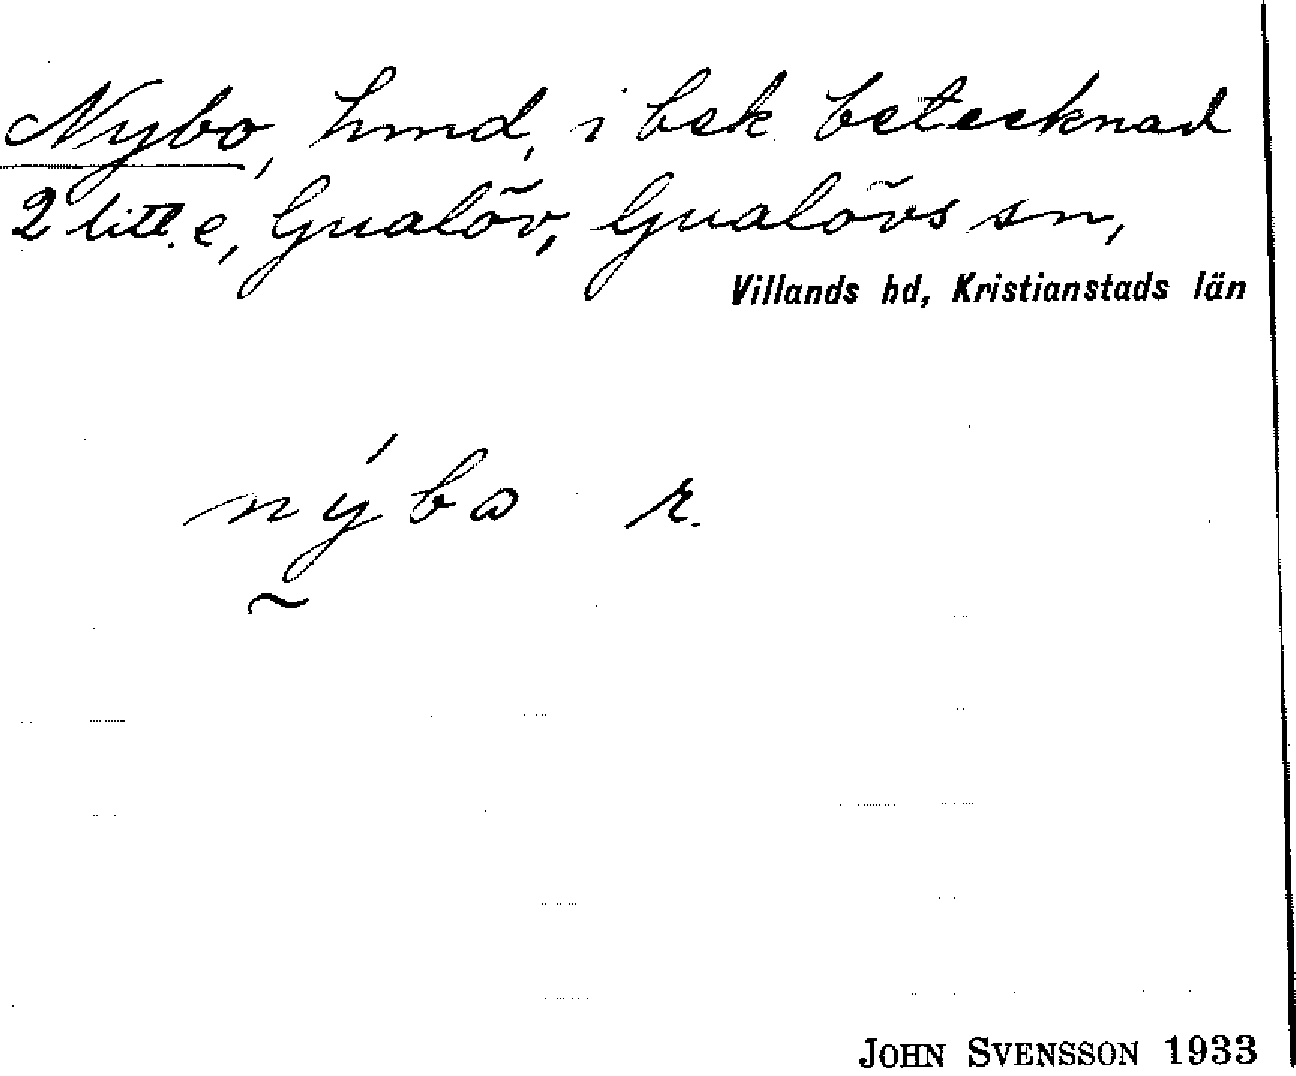 Nybo, hmd, i bsk betecknad
2 litt. e, Gualöv, Gualövs sn,
Villands hd, Kristianstads län
nýbo r.
JOHN SVENSSON 1933